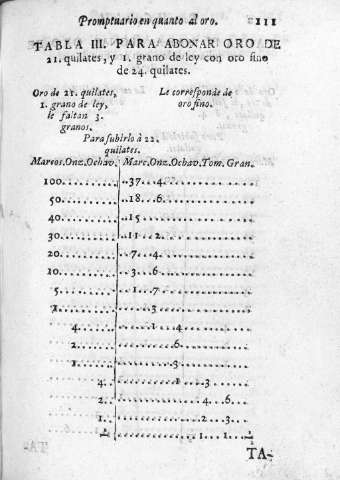 Promptuario en quanto al oro. 111
TABLA III. PARA ABONAR ORO DE
21. quilates, y 1. grano de ley con oro fino
de 24. quilates.
Oro de 21. quilates,
1. grano de ley,
le faltan 3.
granos.
Le corresponde de
oro fino.
Para subirlo à 22.
quilates.
Marcos. Onz. Ochav. Marc. Onz. Ochav. Tom. Gran.
100......... ..37...4............
50......... ..18...6............
40......... ..15................
30......... ..11...2............
20......... ...7...4............
10......... ...3...6............
5......... ...1...7............
1......... .......3............
4...... .......1....4.......
2...... ............6.......
1...... ............3.......
4... ............1.....3...
2... .................4...6...
1... .................2...3...
1/2 .................1...1...1/2
TA-